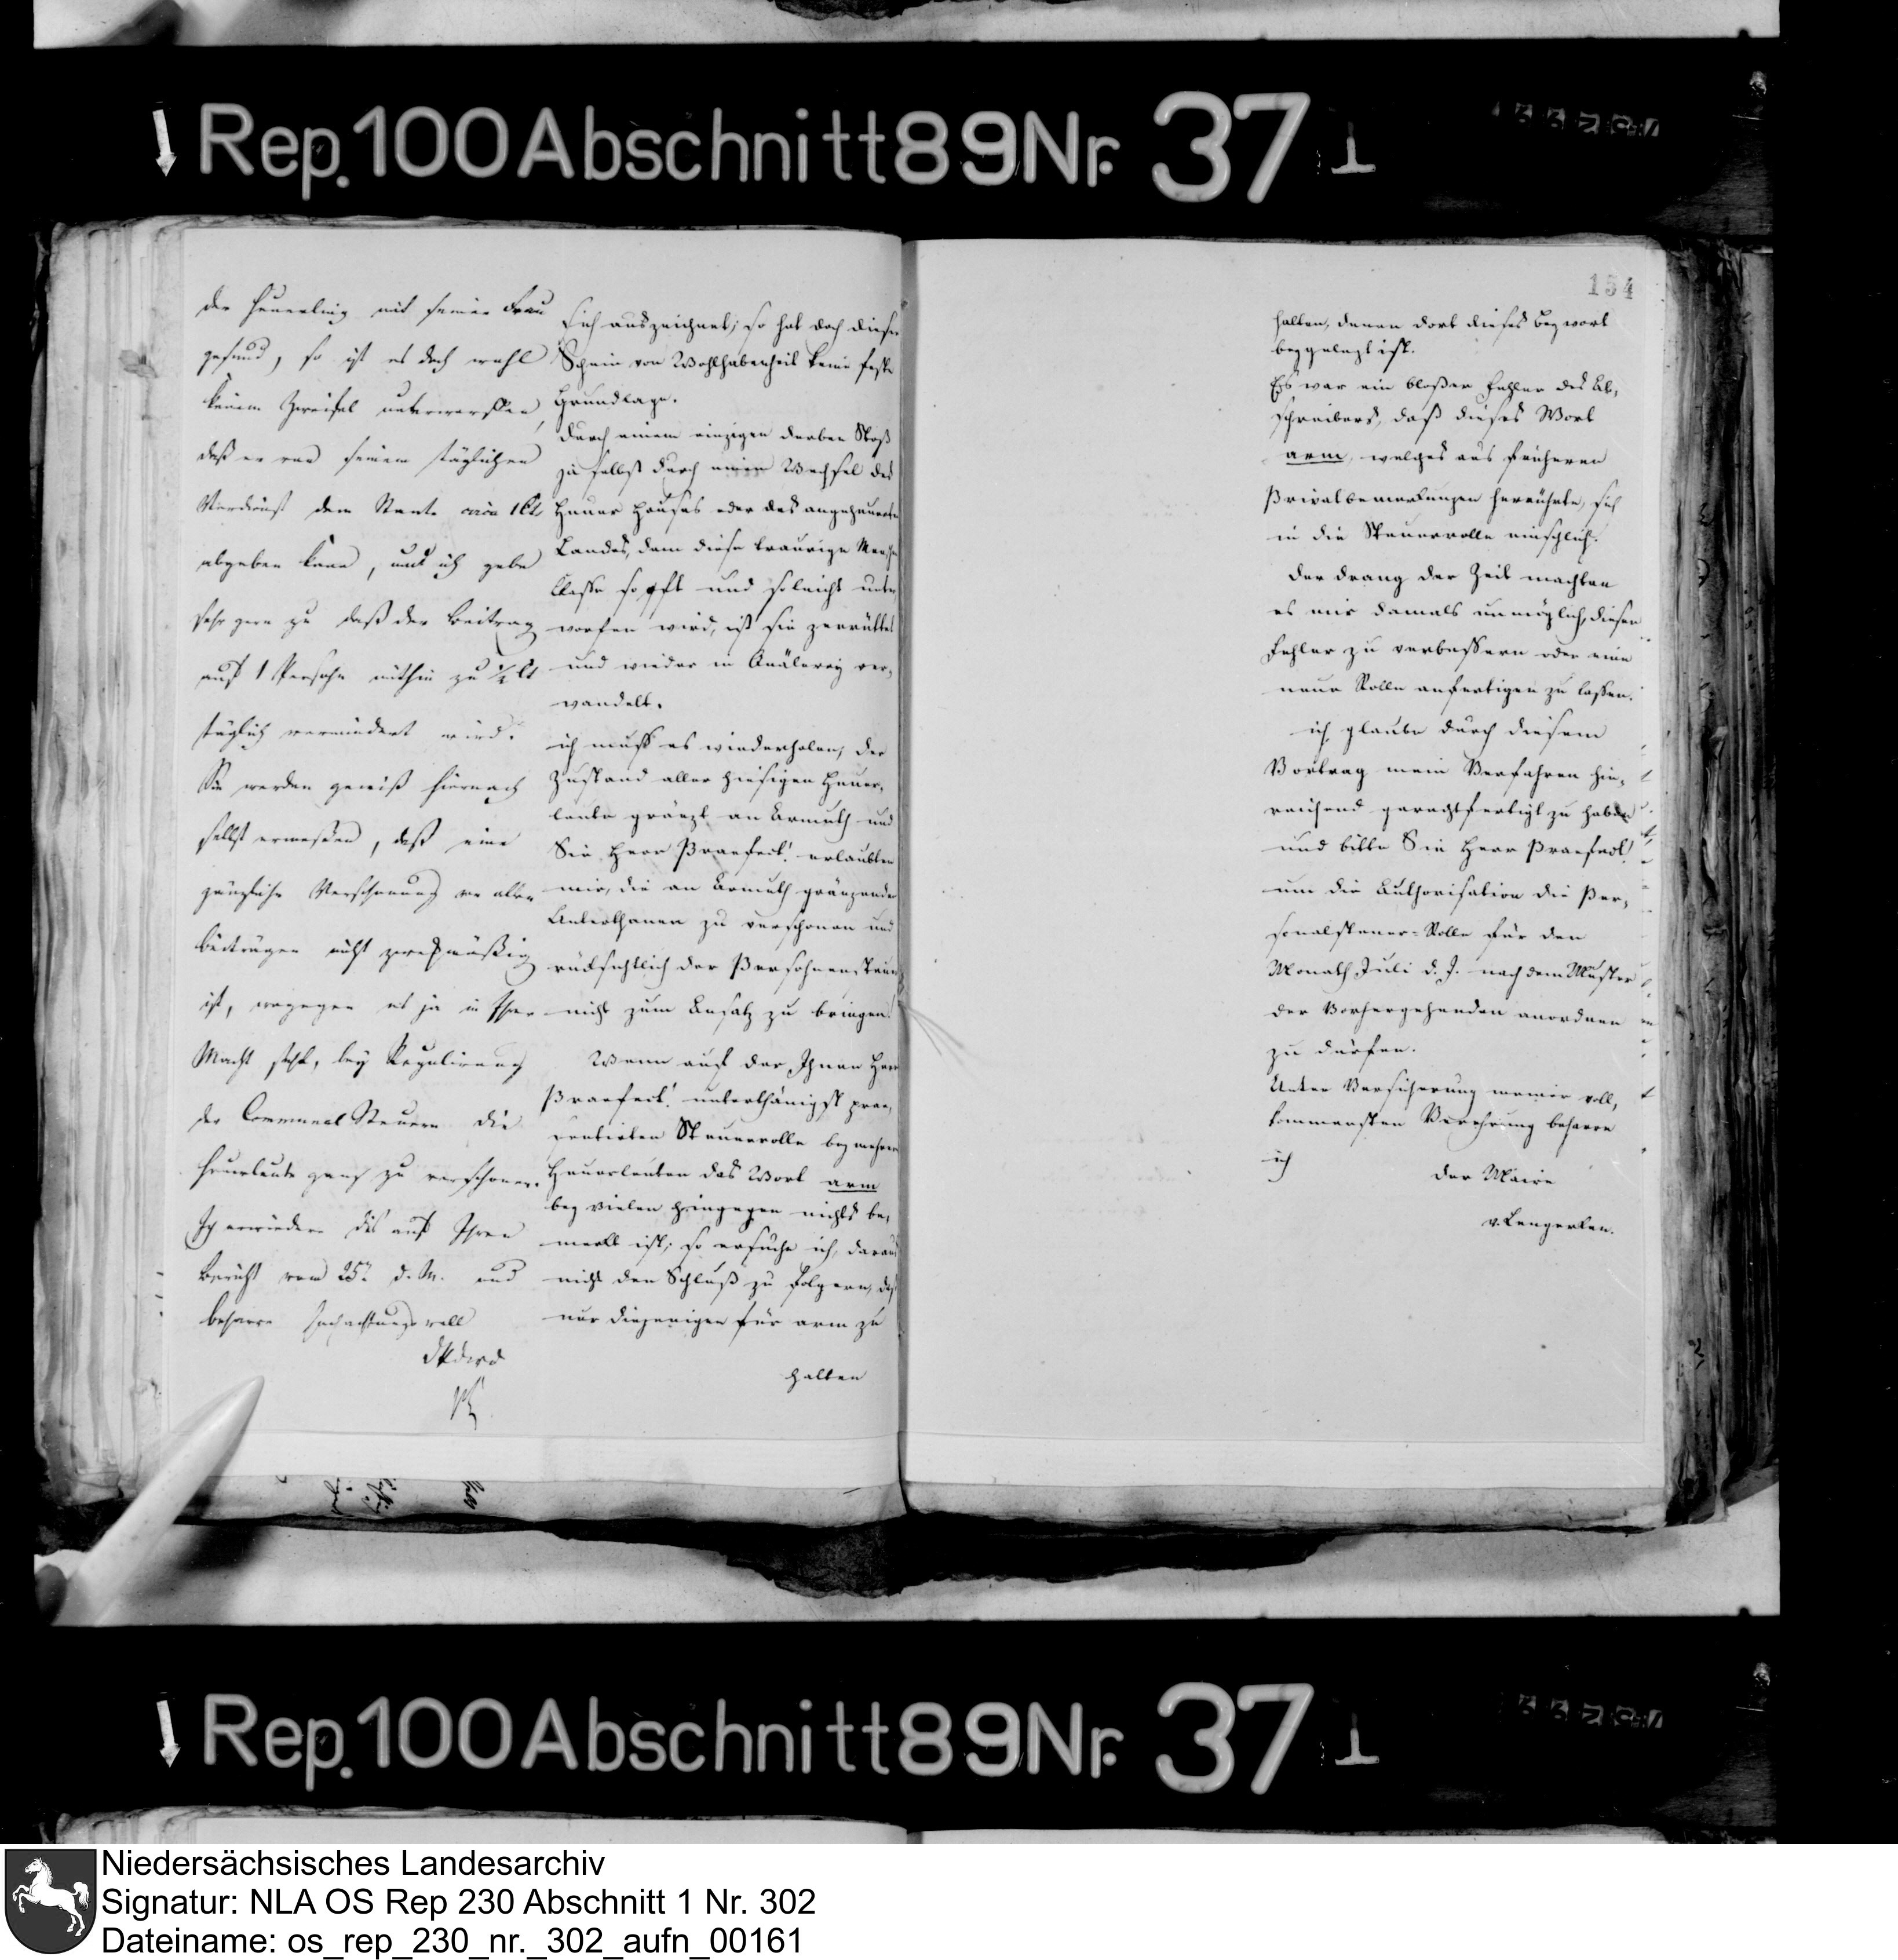 Rep. 100 Abschnitt 89 Nr. 37 I
154
der Heuerling mit seiner Frau
gesund, so ist es doch wohl
keinem Zweifel unterworffen,
daß er von seinem täglichen
Verdienst dem Staate circa 1
abgeben kann, und ich gebe
sehr gern zu daß der Beitrag
auf 1 Persohn mithin zu ½
täglich vermindert wird.
Sie werden gewiß hiernach
selbst ermessen, daß eine
gänzliche Verschonung von allen
beiträgen nicht zweckmäßig
ist, wogegen es ja in Ihrer
Macht steht, bey Regulirung
der Communal Steuern die
Heuerleute ganz zu verschonen.
Ich erwiedere dis auf Ihren
Bericht vom 25n d. M. und
beharre hochachtungsvoll
sich auszeichnet; so hat doch dieser
Schein von Wohlhabenheit keine feste
Grundlage.
durch einem einzigen derben Stoß
ja selbst durch einen Wechsel des
Heuer Hauses oder des angeheuerten
Landes, dem diese traurige Menschen
Classe so oft und so leicht unter
worfen wird, ist sie zerrüttet
und wieder in Quälerey ver,
wandelt.
ich muß es wiederholen, der
Zustand aller hiesigen Heuer,
leute gränzt an Armuth und
Sie Herr Praefect! erlaubten
mir, die an Armuth gränzenden
Unterthanen zu verschonen und
rücksichtlich der Persohnensteuer
nicht zum Ansatz zu bringen!
Wenn auf der Ihnen Herr
Praefect! unterthänigst prae,
sentirten Steuerrolle bey mehrern
Heuerleuten das Wort arm
bey vielen hingegen nichts be,
merkt ist; so ersuche ich, daraus
nicht den Schluß zu folgern, daß
nur diejenigen für arm zu
halten
halten, denen dort dieses Beywort
beygelegt ist.
Es war ein bloßer Fehler des Ab,
schreibers, daß dieses Wort
arm, welches aus früheren
Privatbemerkungen herrührte, sich
in die Steuerrolle einschlich.
Der Drang der Zeit machten
es mir damals unmöglich, diesen
Fehler zu verbessern oder eine
neue Rolle anfertigen zu lassen.
ich glaube durch diesem
Vortrag mein Verfahren hin,
reichend gerechtfertigt zu haben
und bitte Sie Herr Praefect!
um die Authorisation die Per,
sonalsteuer-Rolle für den
Monath Juli d. J. nach dem Muster
der Vorhergehenden anordnen
zu dürfen.
Unter Versicherung meiner voll,
kommensten Verehrung beharre
ich
der Maire
v. Lengerken.
Rep. 100 Abschnitt 89 Nr. 37 I
Niedersächsisches Landesarchiv
Signatur: NLA OS Rep 230 Abschnitt 1 Nr. 302
Dateiname: os_rep_230_nr._302_aufn_00161